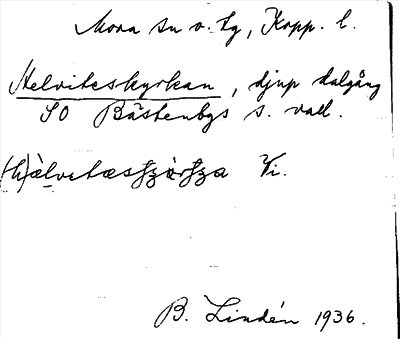 Mora sn o. tg, Kopp. l.
Helviteskyrkan, djup dalgång
SO Bästenbys s. vall.
Vi.
B. Lindén 1936.